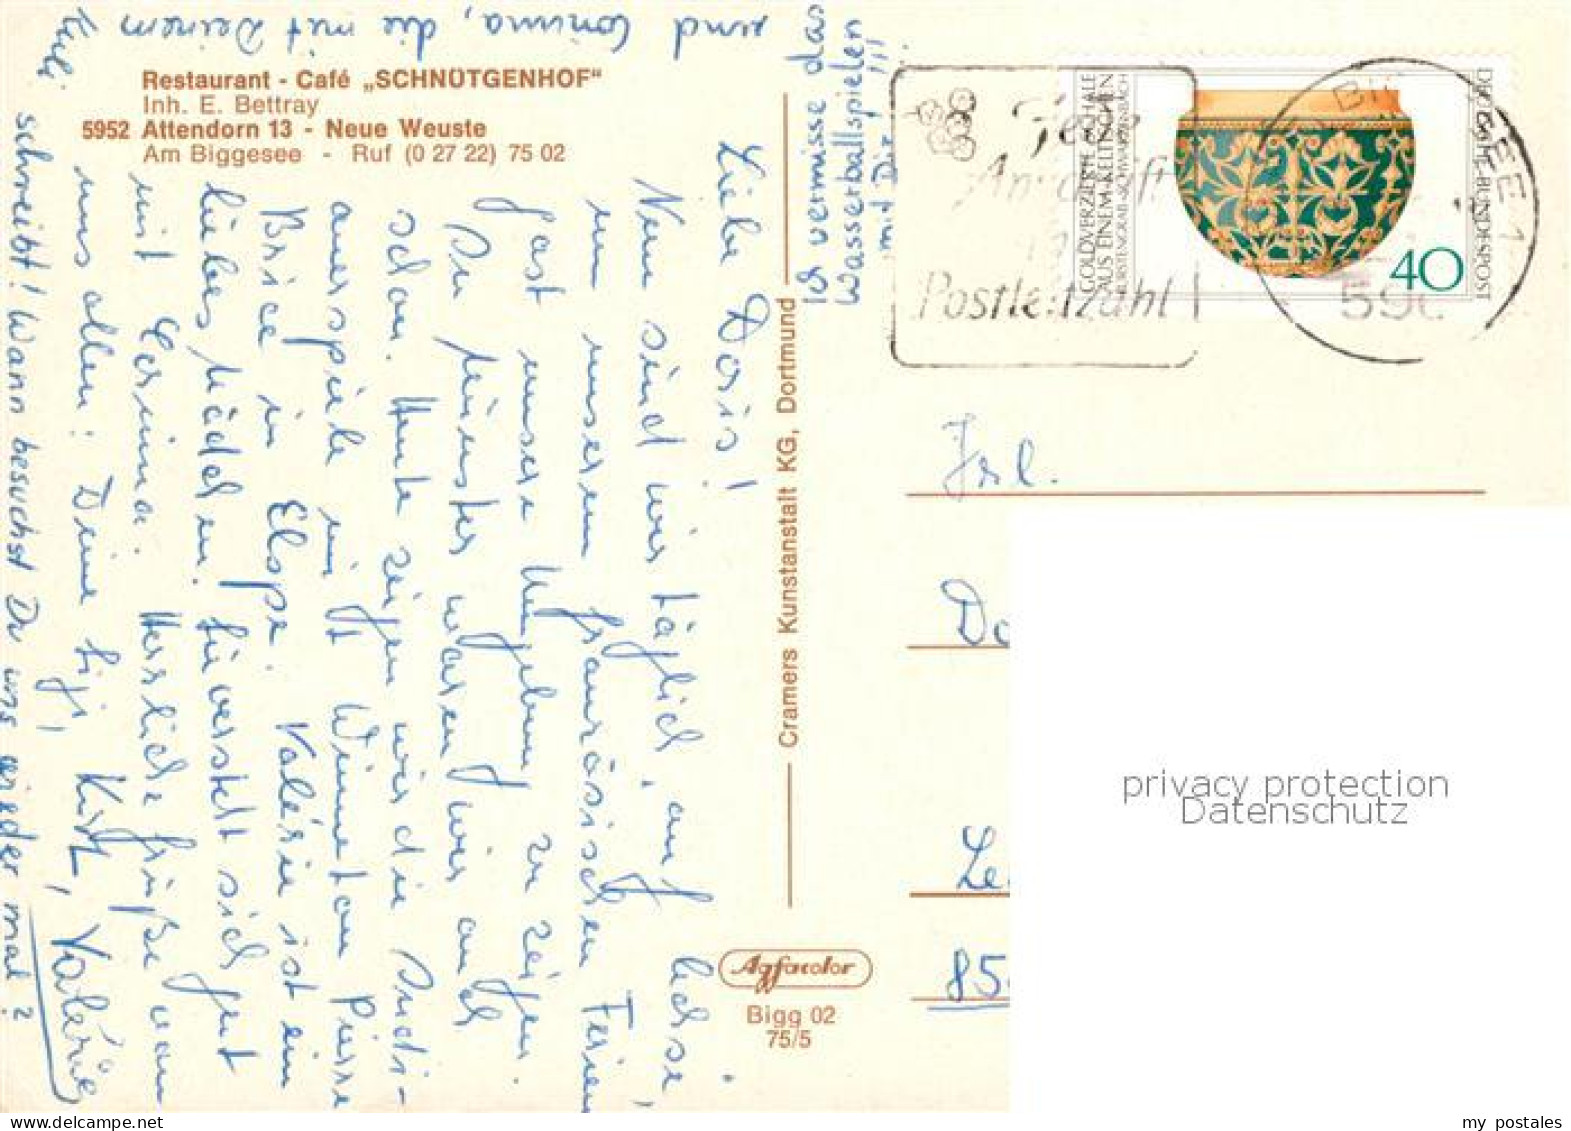 Restaurant - Café „SCHNÜTGENHOF“
Inh. E. Bettray
5952 Attendorn 13 - Neue Weuste
Am Biggesee - Ruf (0 27 22) 75 02
Liebe Doris!
Nun sind wir täglich auf Achse,
um unserem französischen Ferien
gast unsere Umgebung zu zeigen.
In Münster waren wir auch
schon. Heute zeigen wir die
auerspiele mit Winnetou Pierre
Brice in Elspe. Valérie ist ein
liebes Mädchen. Sie versteht sich gut
mit Corinna. Herzliche Grüße von
uns allen! Deine Kurt, Valérie
und Corinna, die mit Deinem
schreibt! Wann besuchst Du uns wieder mal?
Ich vermisse das
Wasserballspielen
mit Dir!!!
Cramers Kunstanstalt KG, Dortmund
Agfacolor
Bigg 02
75/5
GOLDVERZIERTE SCHALE
AUS EINEM KELTISCHEN
FÜRSTENGRAB · SCHWARZENBACH
DEUTSCHE BUNDESPOST
40
Postleitzahl
590
Frl.
Do
Le
85
privacy protection
Datenschutz
my postales